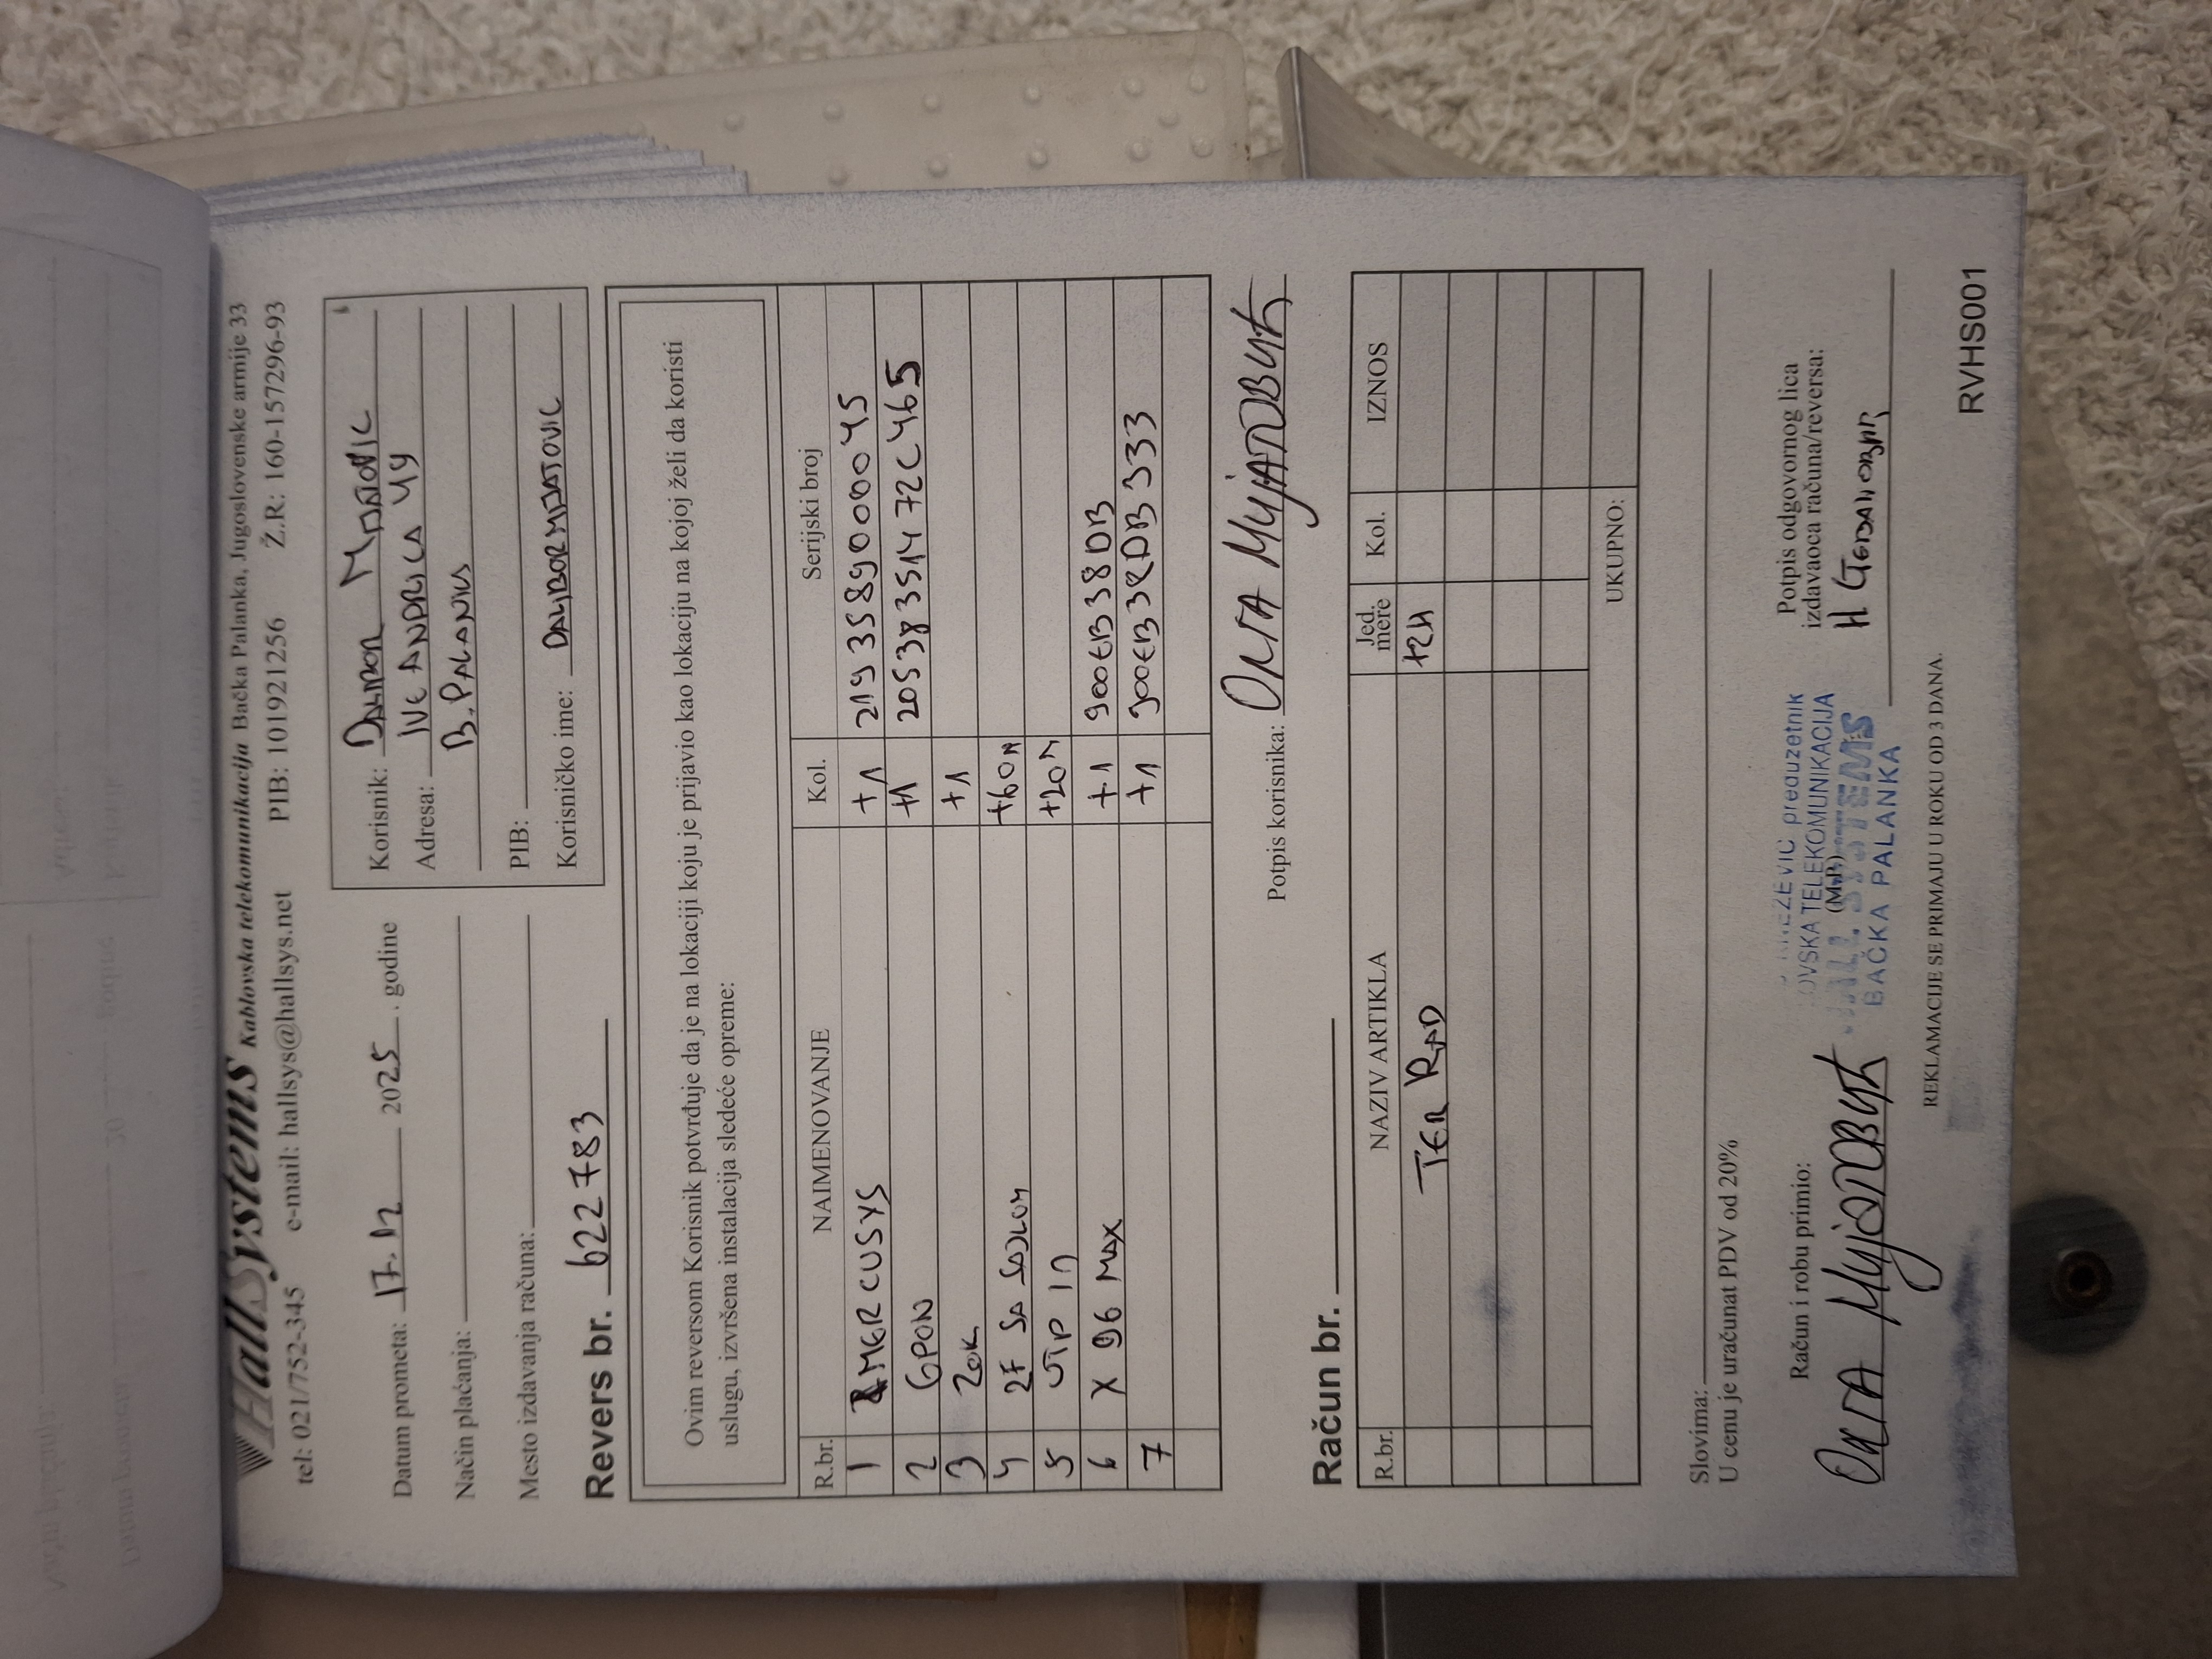 HallSystems Kablovska telekomunikacija Bačka Palanka, Jugoslovenske armije 33
tel: 021/752-345 e-mail: hallsys@hallsys.net PIB: 101921256 Ž.R: 160-157296-93
Datum prometa: 17.12 2025 . godine
Način plaćanja:
Mesto izdavanja računa:
Revers br. 622783
Korisnik: DALIBOR
Adresa: IVE ANDRICA 44
B.PALANKA
PIB:
Korisničko ime: DALIBORMIJATOVIC
Ovim reversom Korisnik potvrđuje da je na lokaciji koju je prijavio kao lokaciju na kojoj želi da koristi
uslugu, izvršena instalacija sledeće opreme:
R.br. NAIMENOVANJE Kol. Serijski broj
1 MERCUSYS +1 2193589000045
2 GPON +1 205378351472C465
3 ZOK +1
4 2F SA SAJLOM +60M
5 UTP +20M
6 X 96 MAX +1 900EB338DB
7 +1 900EB38DB333
Potpis korisnika: ОЛГА МИЈАТОВИЋ
Račun br.
R.br. NAZIV ARTIKLA Jed. mere Kol. IZNOS
TER RAD +2H
UKUPNO:
Slovima:
U cenu je uračunat PDV od 20%
Račun i robu primio:
ОЛГА МИЈАТОВИЋ
preduzetnik
TELEKOMUNIKACIJA
(M.P.)
HALL SYSTEMS
BAČKA PALANKA
Potpis odgovornog lica
izdavaoca računa/reversa:
REKLAMACIJE SE PRIMAJU U ROKU OD 3 DANA.
RVHS001